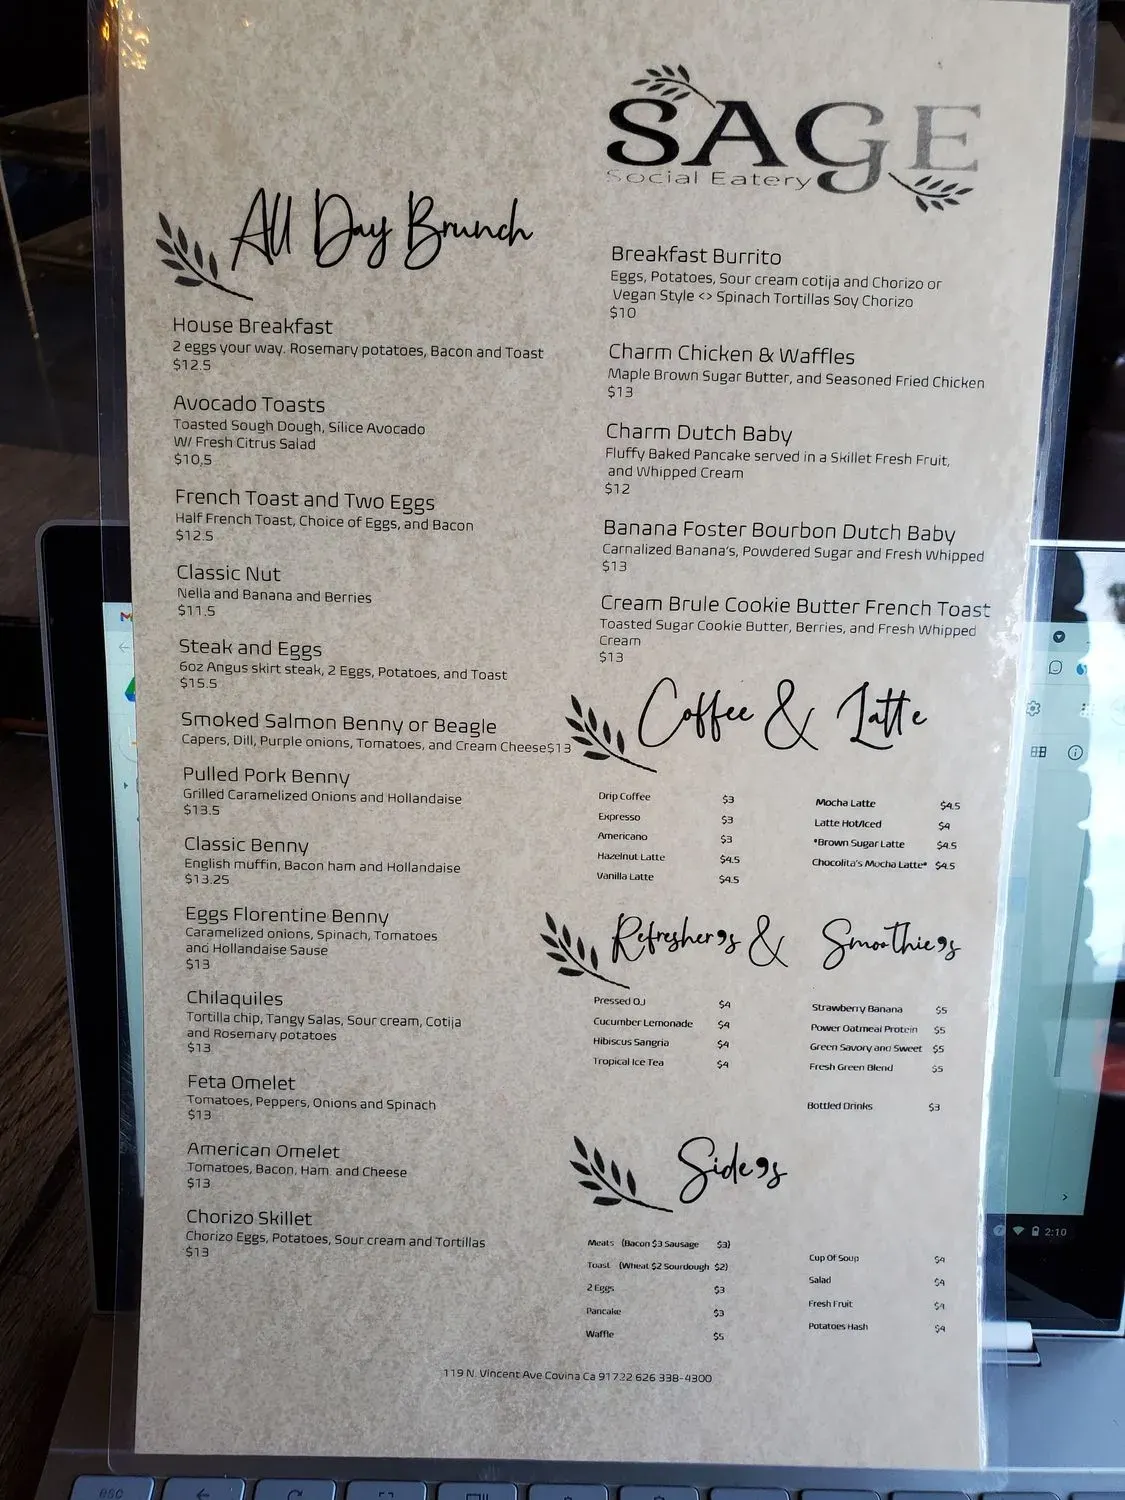 SAGE
Social Eatery
All Day Brunch
House Breakfast
2 eggs your way. Rosemary potatoes, Bacon and Toast
$12.5
Avocado Toasts
Toasted Sough Dough, Silice Avocado
W/ Fresh Citrus Salad
$10,5
French Toast and Two Eggs
Half French Toast, Choice of Eggs, and Bacon
$12.5
Classic Nut
Nella and Banana and Berries
$11.5
Steak and Eggs
6oz Angus skirt steak, 2 Eggs, Potatoes, and Toast
$15.5
Smoked Salmon Benny or Beagle
Capers, Dill, Purple onions, Tomatoes, and Cream Cheese$13
Pulled Pork Benny
Grilled Caramelized Onions and Hollandaise
$13.5
Classic Benny
English muffin, Bacon ham and Hollandaise
$13.25
Eggs Florentine Benny
Caramelized onions, Spinach, Tomatoes
and Hollandaise Sause
$13
Chilaquiles
Tortilla chip, Tangy Salas, Sour cream, Cotija
and Rosemary potatoes
$13
Feta Omelet
Tomatoes, Peppers, Onions and Spinach
$13
American Omelet
Tomatoes, Bacon, Ham. and Cheese
$13
Chorizo Skillet
Chorizo Eggs, Potatoes, Sour cream and Tortillas
$13
Breakfast Burrito
Eggs, Potatoes, Sour cream cotija and Chorizo or
Vegan Style <> Spinach Tortillas Soy Chorizo
$10
Charm Chicken & Waffles
Maple Brown Sugar Butter, and Seasoned Fried Chicken
$13
Charm Dutch Baby
Fluffy Baked Pancake served in a Skillet Fresh Fruit,
and Whipped Cream
$12
Banana Foster Bourbon Dutch Baby
Carnalized Banana's, Powdered Sugar and Fresh Whipped
$13
Cream Brule Cookie Butter French Toast
Toasted Sugar Cookie Butter, Berries, and Fresh Whipped
Cream
$13
Coffee & Latte
Drip Coffee $3
Expresso $3
Americano $3
Hazelnut Latte $4.5
Vanilla Latte $4.5
Mocha Latte $4.5
Latte Hot/Iced $4
*Brown Sugar Latte $4.5
Chocolita's Mocha Latte* $4.5
Refresher's & Smoothie's
Pressed OJ $4
Cucumber Lemonade $4
Hibiscus Sangria $4
Tropical Ice Tea $4
Strawberry Banana $5
Power Oatmeal Protein $5
Green Savory and Sweet $5
Fresh Green Blend $5
Bottled Drinks $3
Side's
Meats (Bacon $3 Sausage $3)
Toast (Wheat $2 Sourdough $2)
2 Eggs $3
Pancake $3
Waffle $5
Cup Of Soup $4
Salad $4
Fresh Fruit $4
Potatoes Hash $4
119 N. Vincent Ave Covina Ca 91722 626 338-4300
2:10
esc